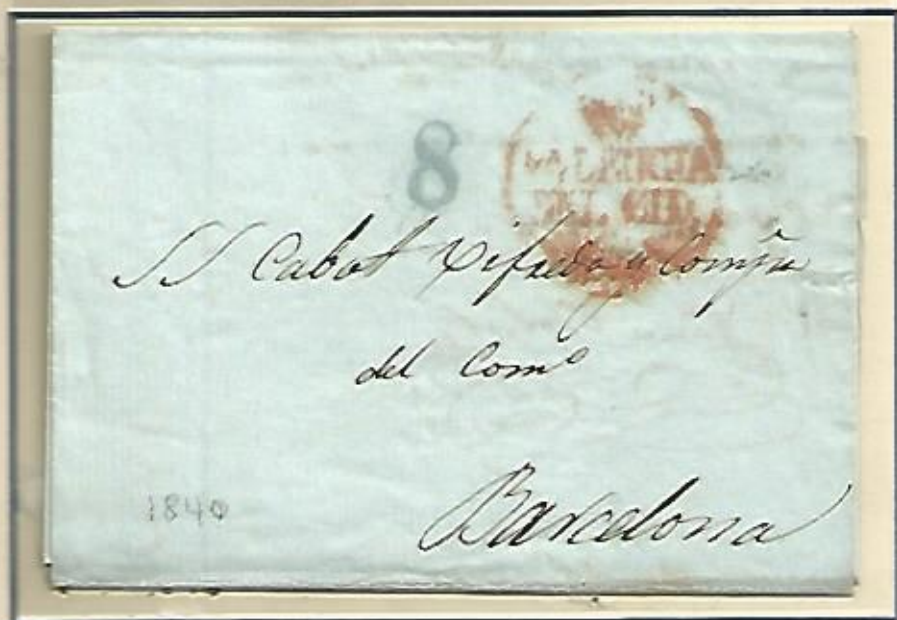 8
VALENCIA
DEL CID.
SS Cabot Xifreda y Compª
del Comº
Barcelona
1840